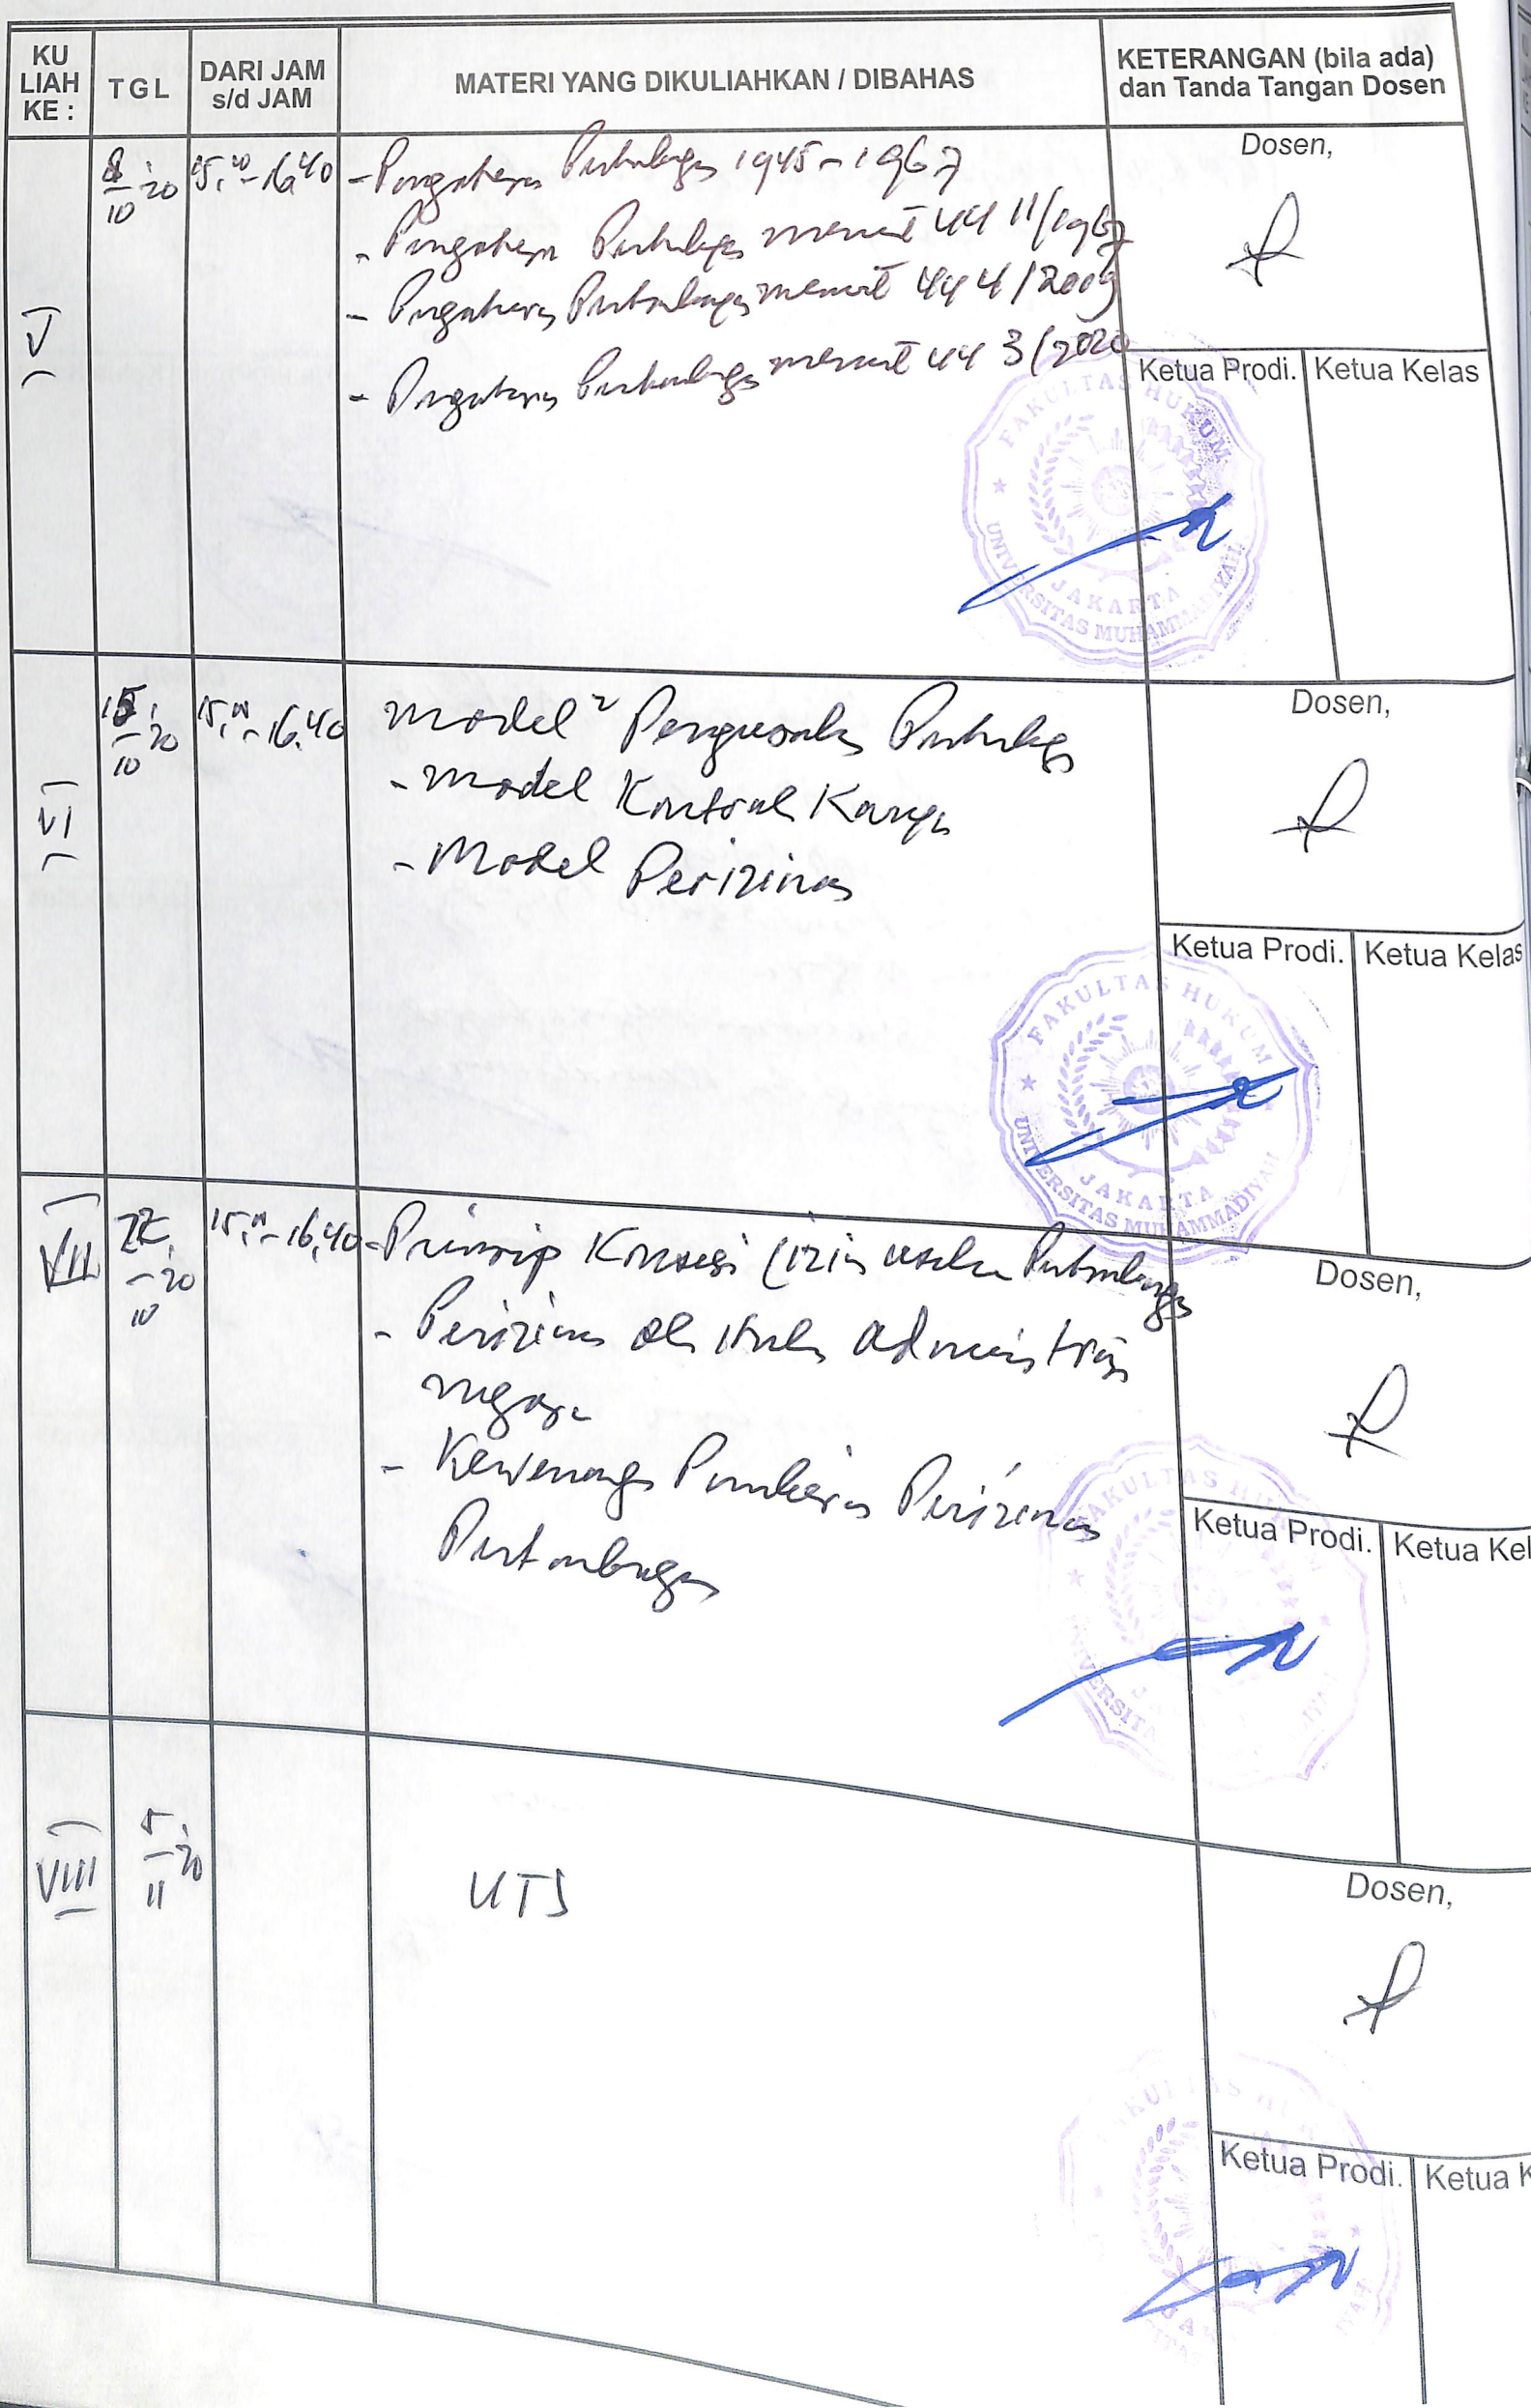 KU LIAH KE :
TGL
DARI JAM s/d JAM
MATERI YANG DIKULIAHKAN / DIBAHAS
KETERANGAN (bila ada) dan Tanda Tangan Dosen
V
8/10 '20
15.00 - 16.40
- Pengaturan Pertambangan 1945 - 1967
- Pengaturan Pertambangan menurut UU 11/1967
- Pengaturan Pertambangan menurut UU 4/2009
- Pengaturan Pertambangan menurut UU 3/2020
Dosen,
Ketua Prodi.
Ketua Kelas
FAKULTAS HUKUM
JAKARTA
UNIVERSITAS MUHAMMADIYAH
VI
15/10 '20
15.00 - 16.40
Model² Pengusahaan Pertambangan
- Model Kontrak Karya
- Model Perizinan
Dosen,
Ketua Prodi.
Ketua Kelas
FAKULTAS HUKUM
JAKARTA
UNIVERSITAS MUHAMMADIYAH
VII
22/10 '20
15.00 - 16.40
- Prinsip Konsesi (izin usaha Pertambangan
- Perizinan dlm Hukum administrasi
negara
- Kewenangan Pemberian Perizinan
Pertambangan
Dosen,
Ketua Prodi.
Ketua Kel
VIII
5/11 '20
UTS
Dosen,
Ketua Prodi.
Ketua K